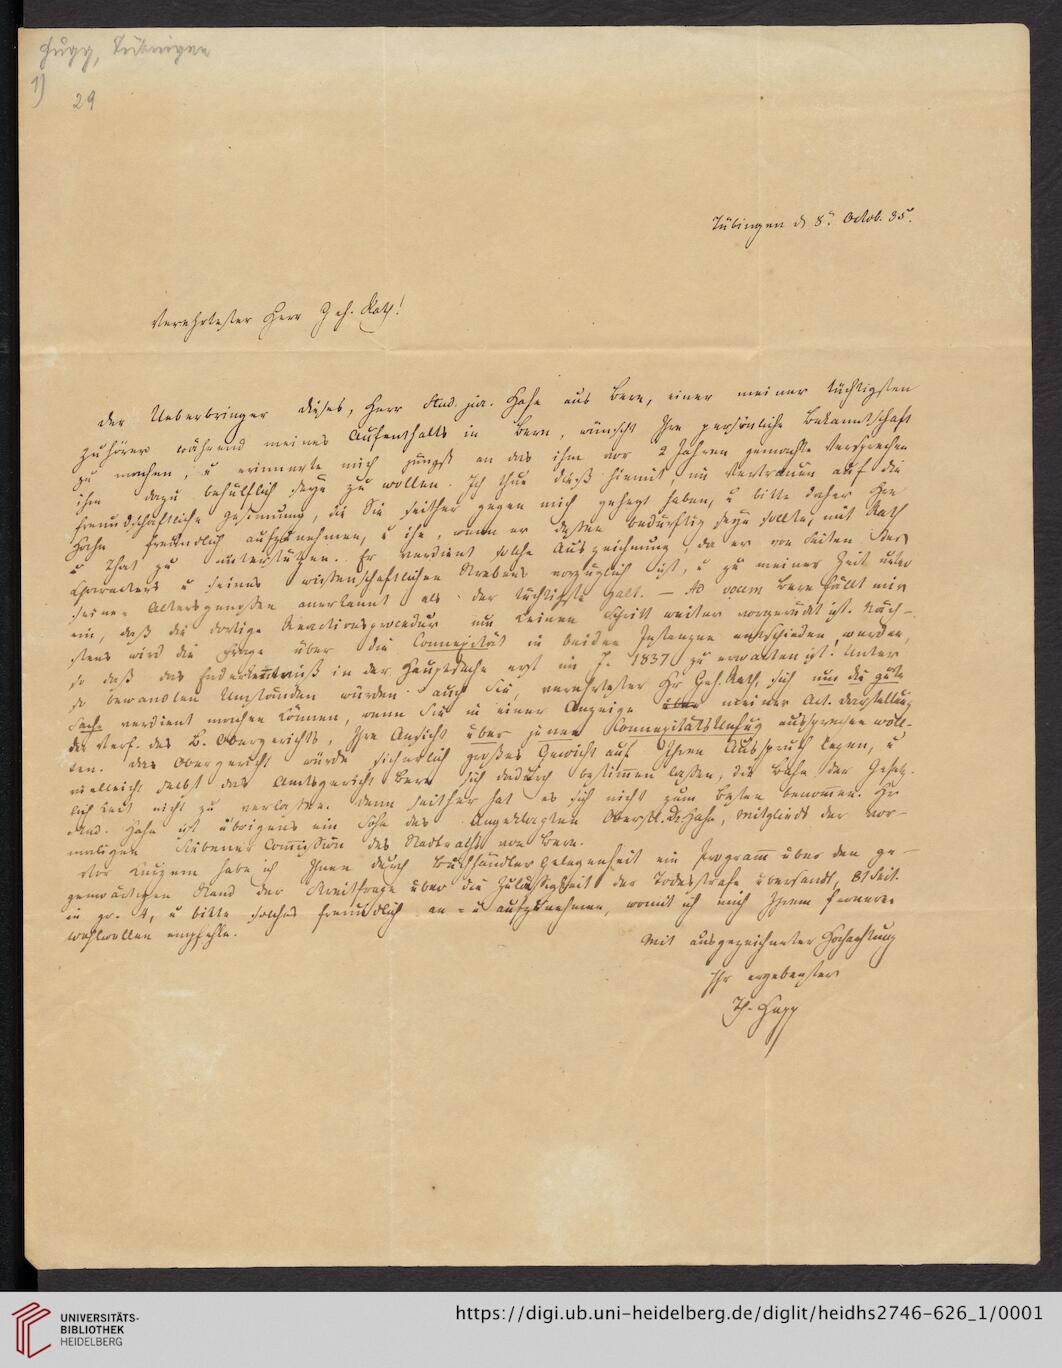 Hugg, Tübingen
1)
29
Tübingen d 8n. Octob. 35.
Verehrtester Herr Geh. Rath!
Der Ueberbringer dieses, Herr Stud. jur. Hahn aus Bern, einer meiner tüchtigsten
Zuhörer während meines Aufenthalts in Bern, wünscht Ihre persönliche Bekanntschaft
zu machen, u erinnerte mich jüngst an das ihm vor 2 Jahren gemachte Versprechen
ihm dazu behülflich seyn zu wollen. Ich thue dieß hiemit, im Vertrauen auf die
freundschaftliche Gesinnung, die Sie seither gegen mich gehegt haben, u bitte daher Hrn
Hahn freundlich aufzunehmen, u ihn, wenn er dessen bedürftig seyn sollte, mit Rath
u That zu unterstützen. Er verdient solche Auszeichnung, da er von Seiten des
Charakters u seines wissenschaftlichen Strebens vorzüglich ist, u zu meiner Zeit unter
seinen Altersgenossen anerkannt als der tüchtigste galt. — Ad vocem Bern fällt mir
ein, daß die dortige Reactionsprocedur um keinen Schritt weiter vorgerückt ist. Näch-
stens wird die Frage über die Connexität in beiden Instanzen entschieden werden,
so daß das Enderkenntniß in der Hauptsache erst im J. 1837 zu erwarten ist. Unter
so bewandten Umständen würden auch Sie, verehrtester Hr Geh. Rath, sich um die gute
Sache verdient machen können, wenn Sie in einer Anzeige meiner Act. Darstellung
des Verf. des B. Obergerichts, Ihre Ansicht über jenen Konnexitäts Unfug aussprechen woll-
ten. Das Obergericht würde sicherlich großes Gewicht auf Ihren Ausspruch legen, u
vielleicht selbst das Amtsgericht Bern sich dadurch bestimmen lassen, die Bahn der Gesetz-
lichkeit nicht zu verlassen. Denn seither hat es sich nicht zum Besten benommen. Hr
Hahn ist übrigens ein Sohn des Angeklagten Oberstl. Dr Hahn, Mitglieds der vor-
maligen Siebener Commission des Stadtraths von Bern.
Vor Kurzem habe ich Ihnen durch Buchhändlergelegenheit ein Programm über den ge-
genwärtigen Stand der Streitfrage über die Zulässigkeit der Todesstrafe übersandt, 81 Seit.
in gr. 4, u bitte solches freundlich an- u aufzunehmen, womit ich mich Ihrem ferneren
Wohlwollen empfehle.
Mit ausgezeichneter Hochachtung
Ihr ergebenster
Th. Hepp
UNIVERSITÄTS-
BIBLIOTHEK
HEIDELBERG
https://digi.ub.uni-heidelberg.de/diglit/heidhs2746-626_1/0001